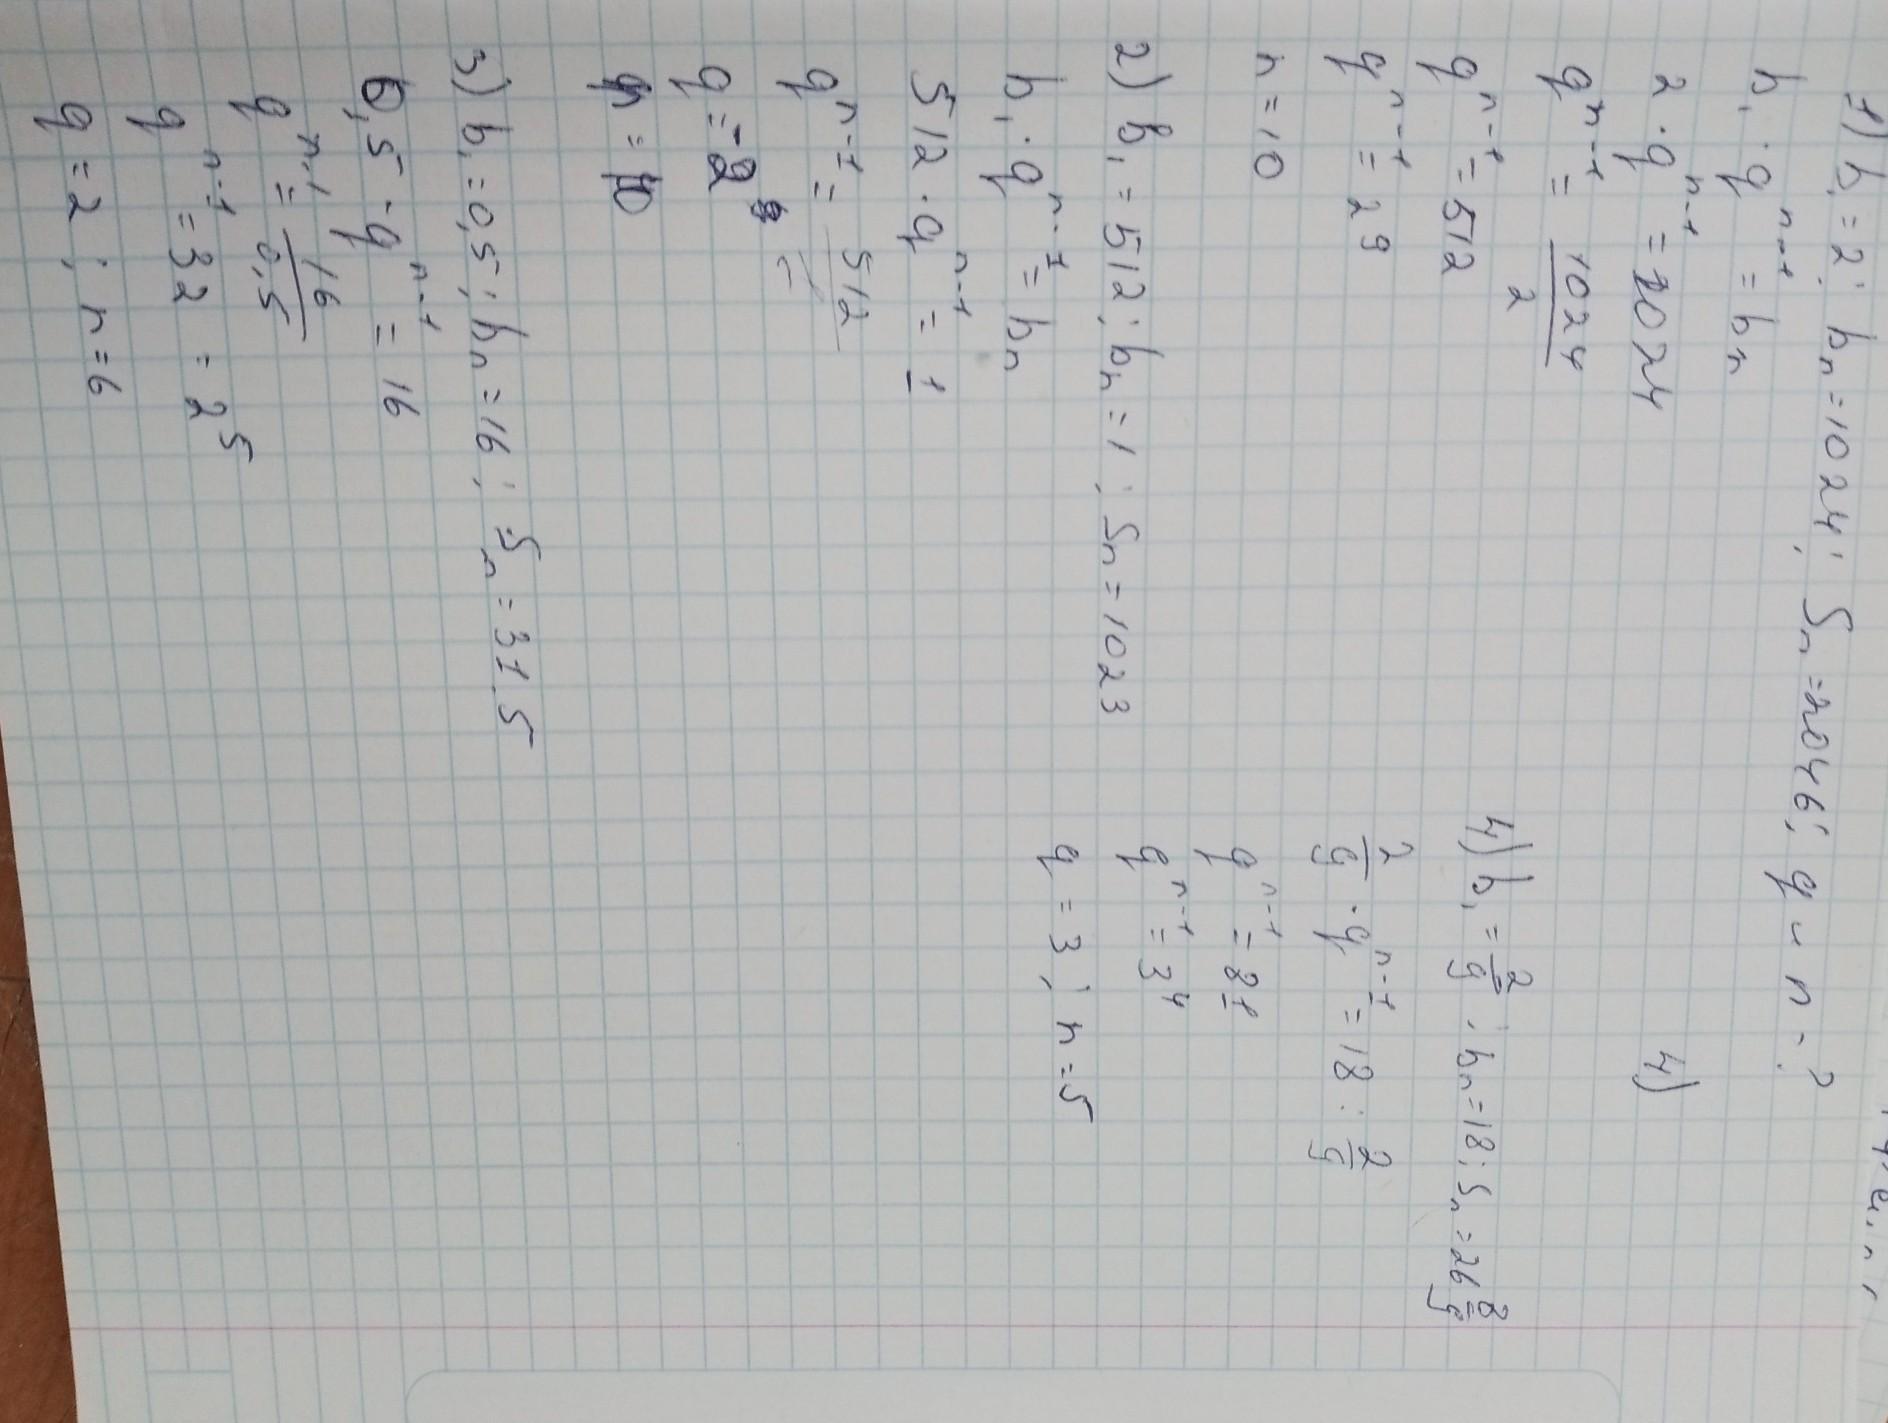 1) b₁ = 2; bₙ = 1024; Sₙ = 2046; q и n - ?
b₁ · qⁿ⁻¹ = bₙ
2 · qⁿ⁻¹ = 1024
qⁿ⁻¹ = 1024/2
qⁿ⁻¹ = 512
qⁿ⁻¹ = 2⁹
n = 10
2) b₁ = 512; bₙ = 1; Sₙ = 1023
b₁ · qⁿ⁻¹ = bₙ
512 · qⁿ⁻¹ = 1
qⁿ⁻¹ = 512
q = -2
n = 10
3) b₁ = 0,5; bₙ = 16; Sₙ = 31.5
0,5 · qⁿ⁻¹ = 16
qⁿ⁻¹ = 16/0,5
qⁿ⁻¹ = 32 = 2⁵
q = 2; n = 6
4)
4) b₁ = 2/9; bₙ = 18; Sₙ = 26 8/9
2/9 · qⁿ⁻¹ = 18 : 2/9
qⁿ⁻¹ = 81
qⁿ⁻¹ = 3⁴
q = 3; n = 5